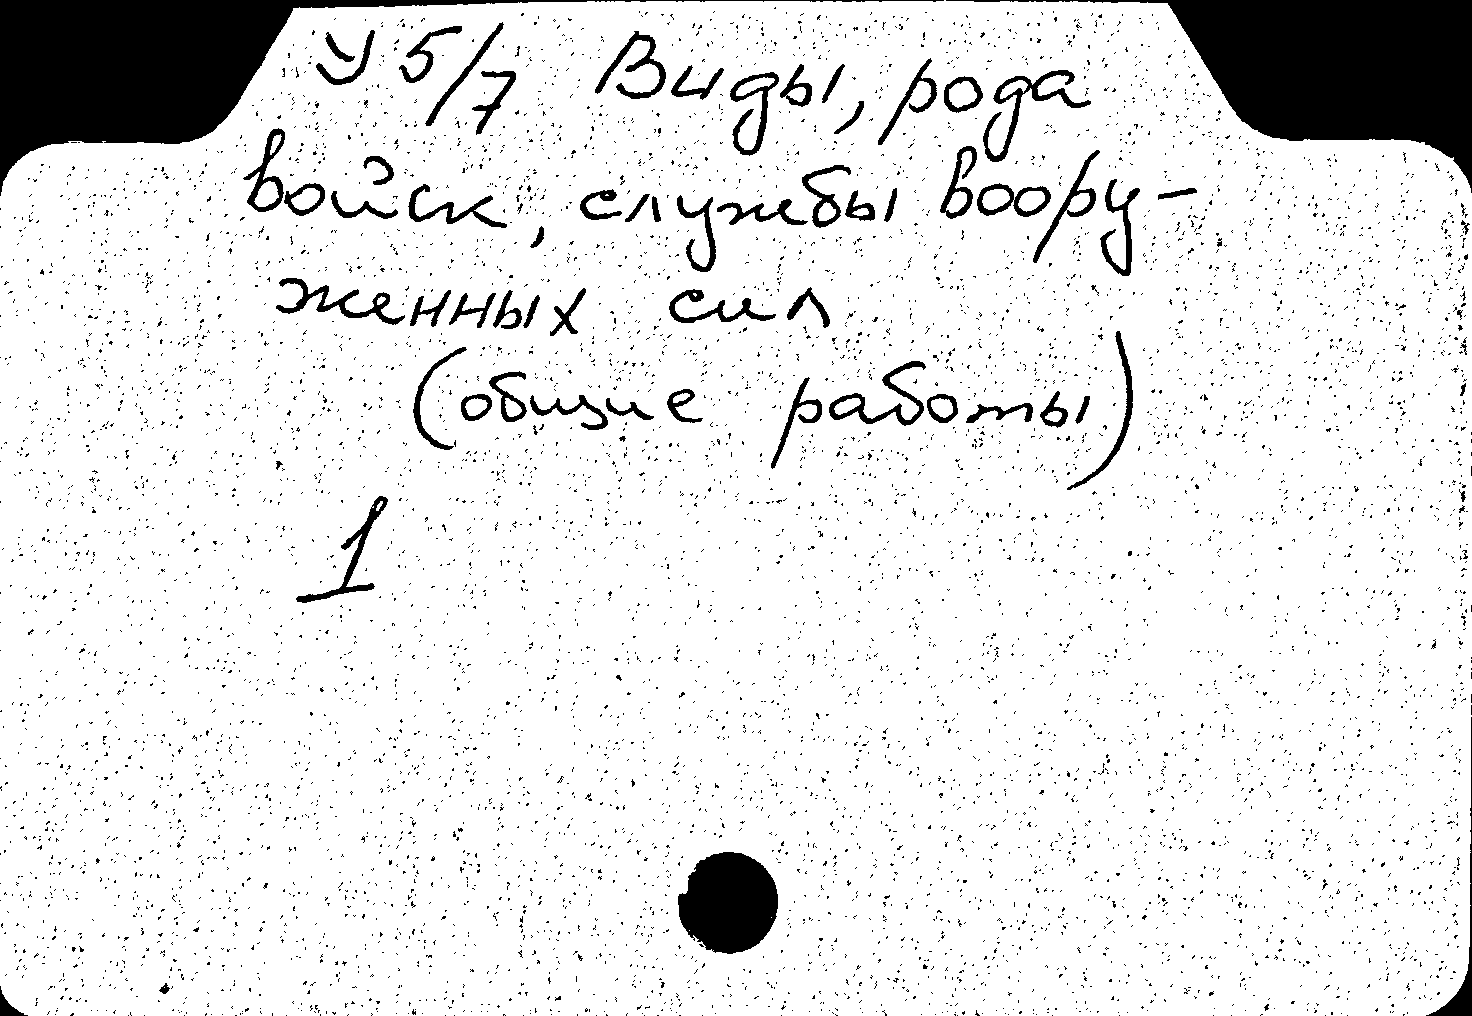 У 5/7 Виды, рода
войск, службы воору-
женных сил
(общие работы)
1